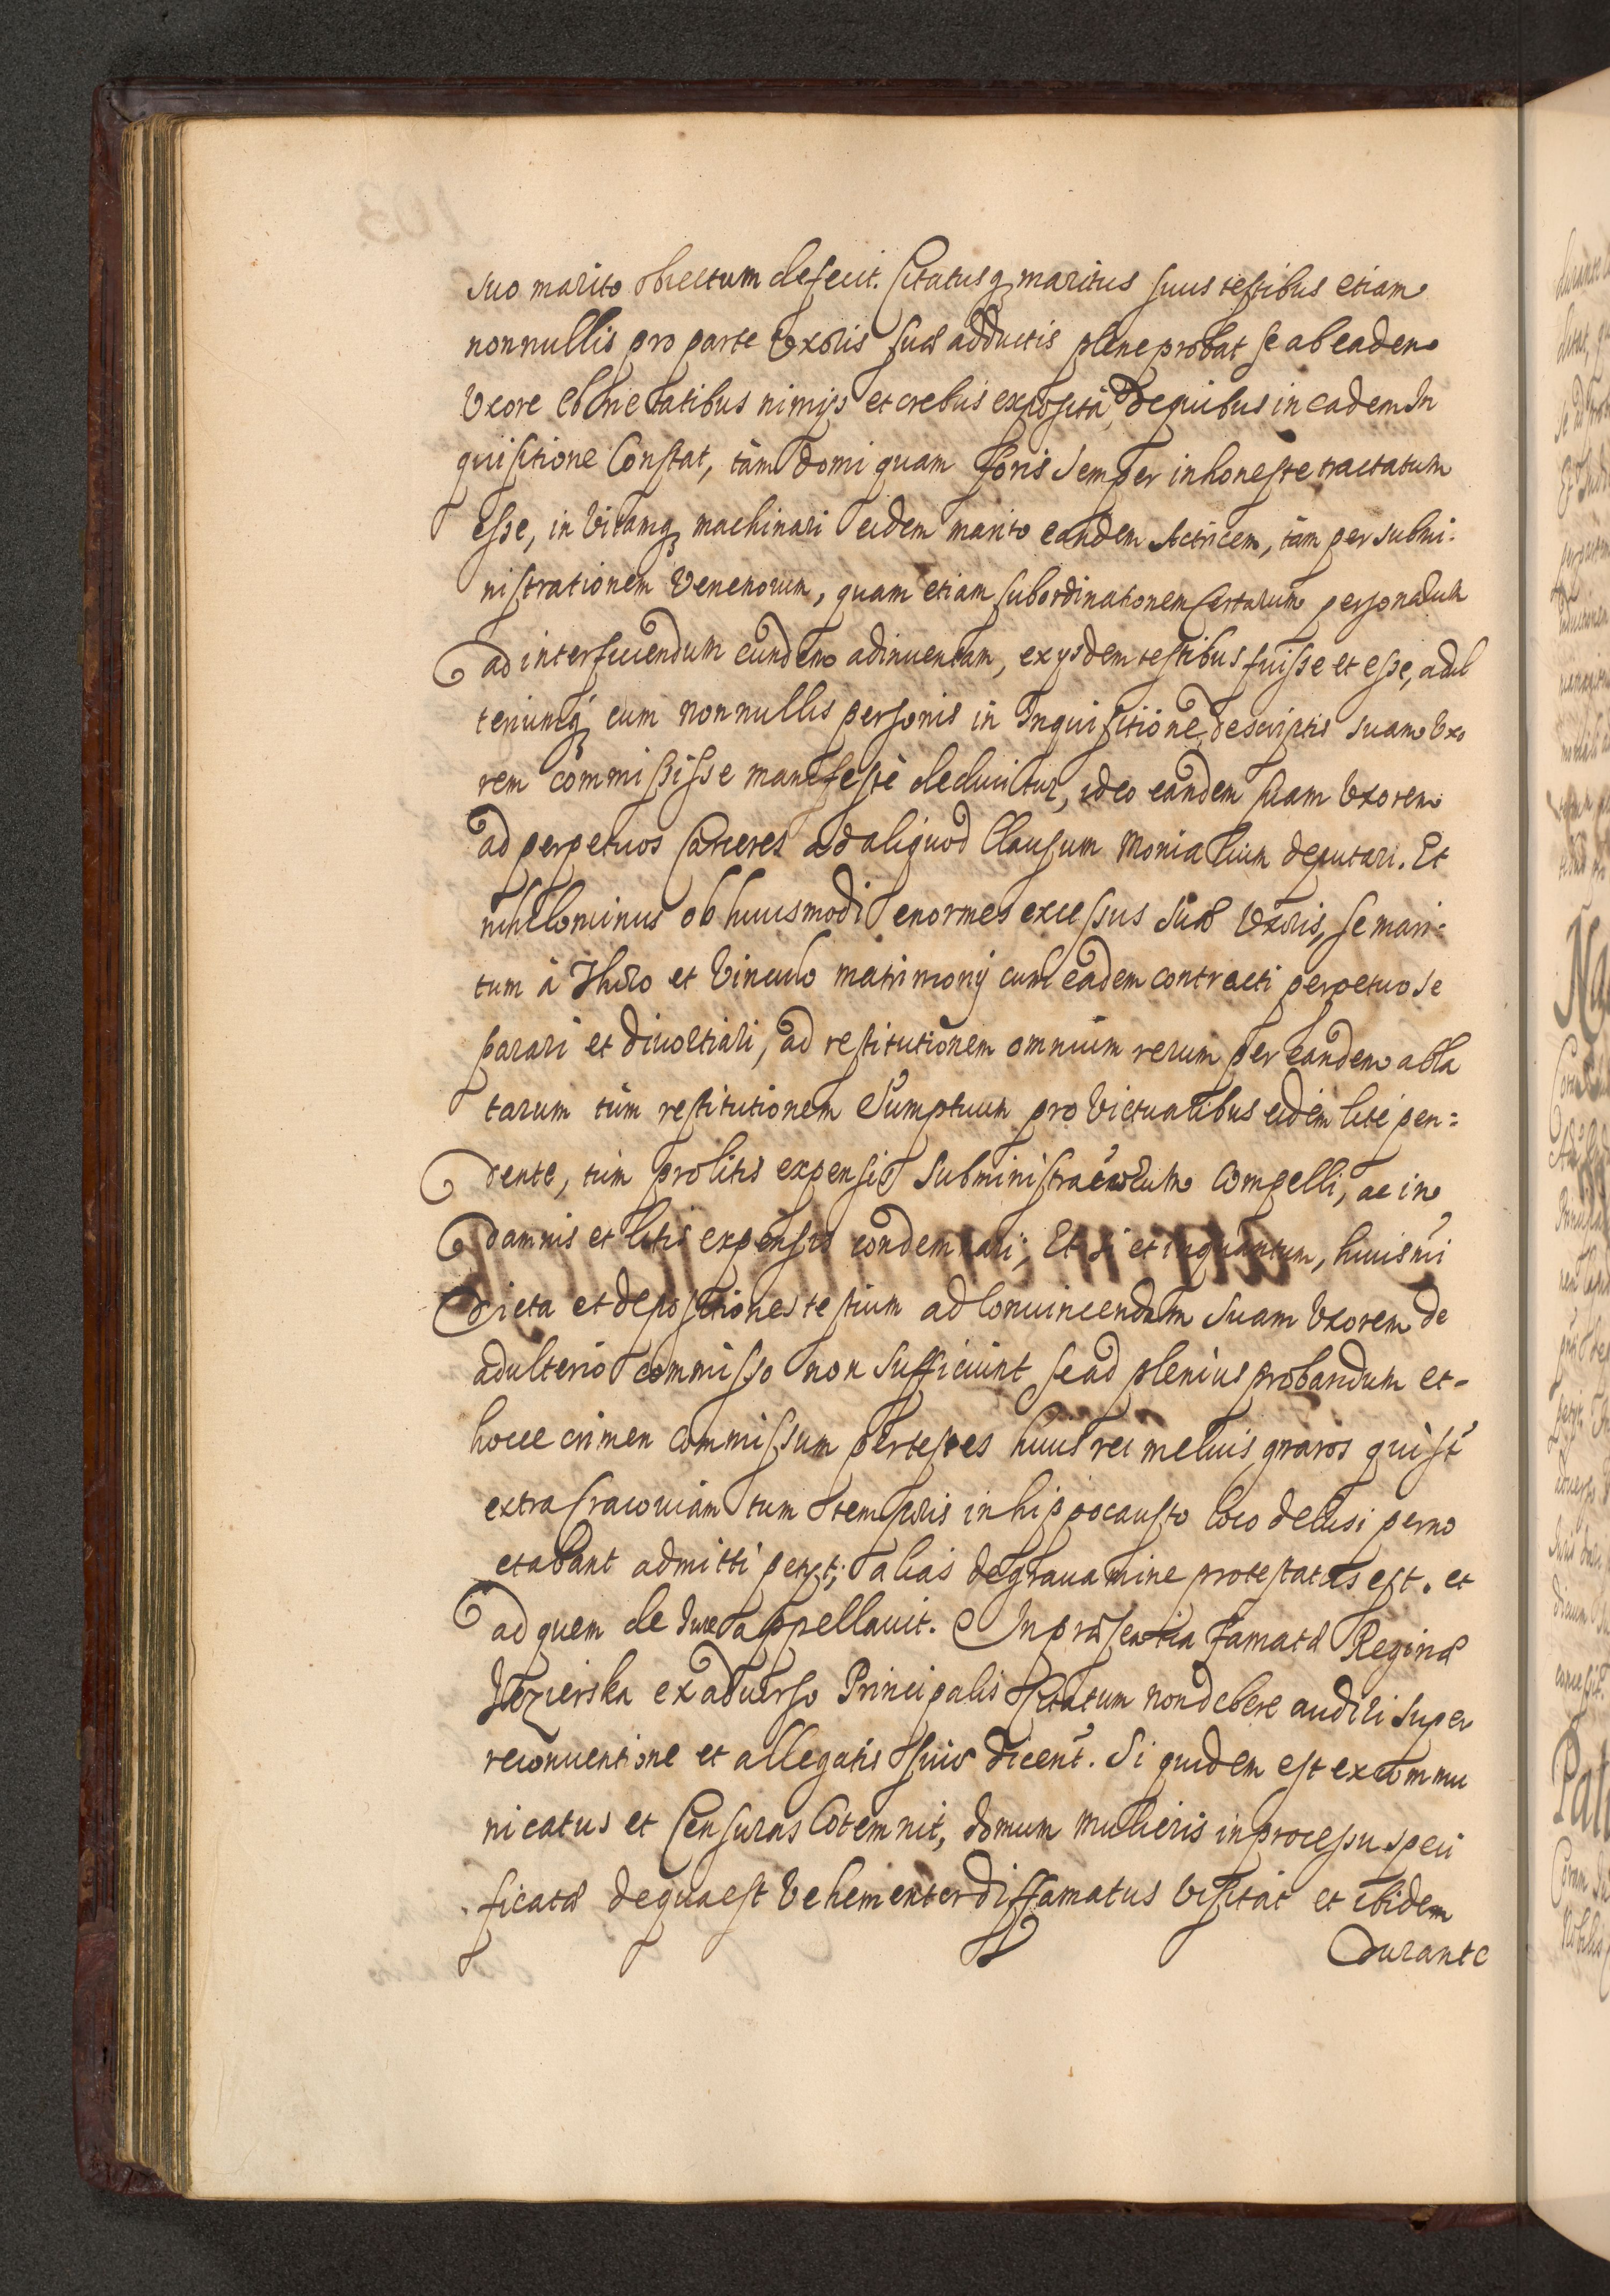 suo marito obiectum defecit. Citatusq₃ maritus suus testibus etiam
nonnullis pro parte Vxoris suæ adductis plene probat se ab eadem
Vxore ebrietatibus nimijs et crebris exposita, de quibus in eadem In
quisitione Constat, tàm domi quam foris semper inhoneste tractatum
esse, in Vitamq₃ machinari eidem marito eandem Actricem, tàm per submi:
nistrationem Venenorum, quam etiam subordinationem Certarum personarum
ad interficiendum eundem adinuentam, ex ysdem testibus fuisse et esse, adul
teriumq₃ cum nonnullis personis in Inquisitione descriptis suam Vxo
rem commississe manifestè deducitur, ideo eandem suam Vxorem
ad perpetuos Carceres ad aliquod Clausum Monialium deputari. Et
nihilominus ob huiusmodi enormes excessus suæ Vxoris, se mari:
tum à Thoro et Vinculo matrimonij cum eadem contracti perpetuo se
parari et diuortiari, ad restitutionem omnium rerum per eandem abla
tarum tùm restitutionem Sumptuum pro Victualibus eidem lite pen:
dente, tùm pro litis expensis Subministratorum Compelli, ac in
damnis et litis expensis condemnari; Et si et inquantum, huiusmi
dicta et depositiones testium ad Conuincendam suam Vxorem de
adulterio commisso non sufficiunt se ad plenius probandum et-
hocce crimen Commissum per testes huius rei melius gnaros qui st
extra Cracouiam tum temporis in hippocausto loco delusi perno
ctabant admitti petyt; alias de grauamine protestatus est. et
ad quem de Iure appellauit. In præsentia famatæ Reginæ
ex aduerso Principalis Citatum non debere audiri super
reconuentione et allegatis suis dicent. Si quidem est excommu
nicatus et Censuras Cotemnit, domum mulieris in processu speci
ficatæ de qua est Vehementer diffamatus visitat et ibidem
durante